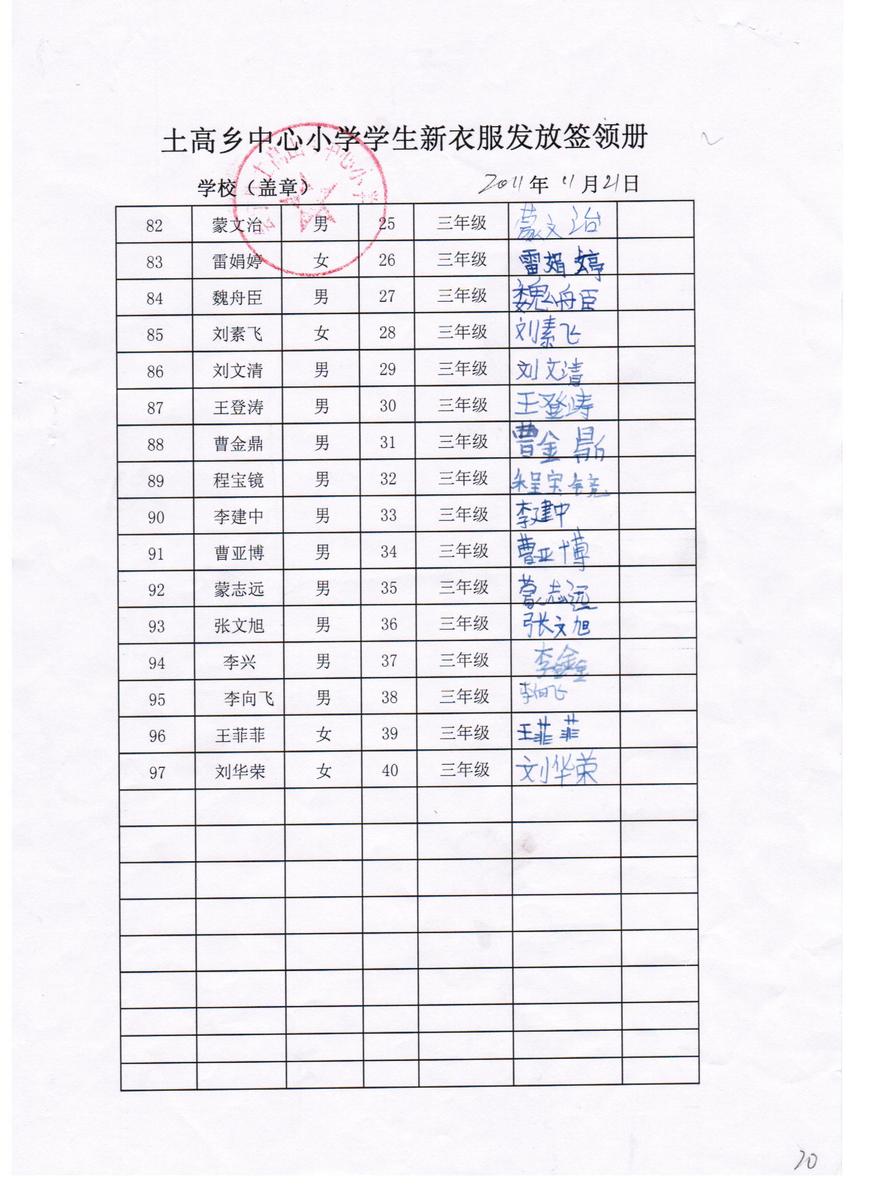 土高乡中心小学学生新衣服发放签领册
学校（盖章） 2011年11月21日
82 蒙文治 男 25 三年级 蒙文治
83 雷娟婷 女 26 三年级 雷娟婷
84 魏舟臣 男 27 三年级 魏舟臣
85 刘素飞 女 28 三年级 刘素飞
86 刘文清 男 29 三年级 刘文清
87 王登涛 男 30 三年级 王登涛
88 曹金鼎 男 31 三年级 曹金鼎
89 程宝镜 男 32 三年级 程宝镜
90 李建中 男 33 三年级 李建中
91 曹亚博 男 34 三年级 曹亚博
92 蒙志远 男 35 三年级 蒙志远
93 张文旭 男 36 三年级 张文旭
94 李兴 男 37 三年级 李鑫
95 李向飞 男 38 三年级 李向飞
96 王菲菲 女 39 三年级 王菲菲
97 刘华荣 女 40 三年级 刘华荣